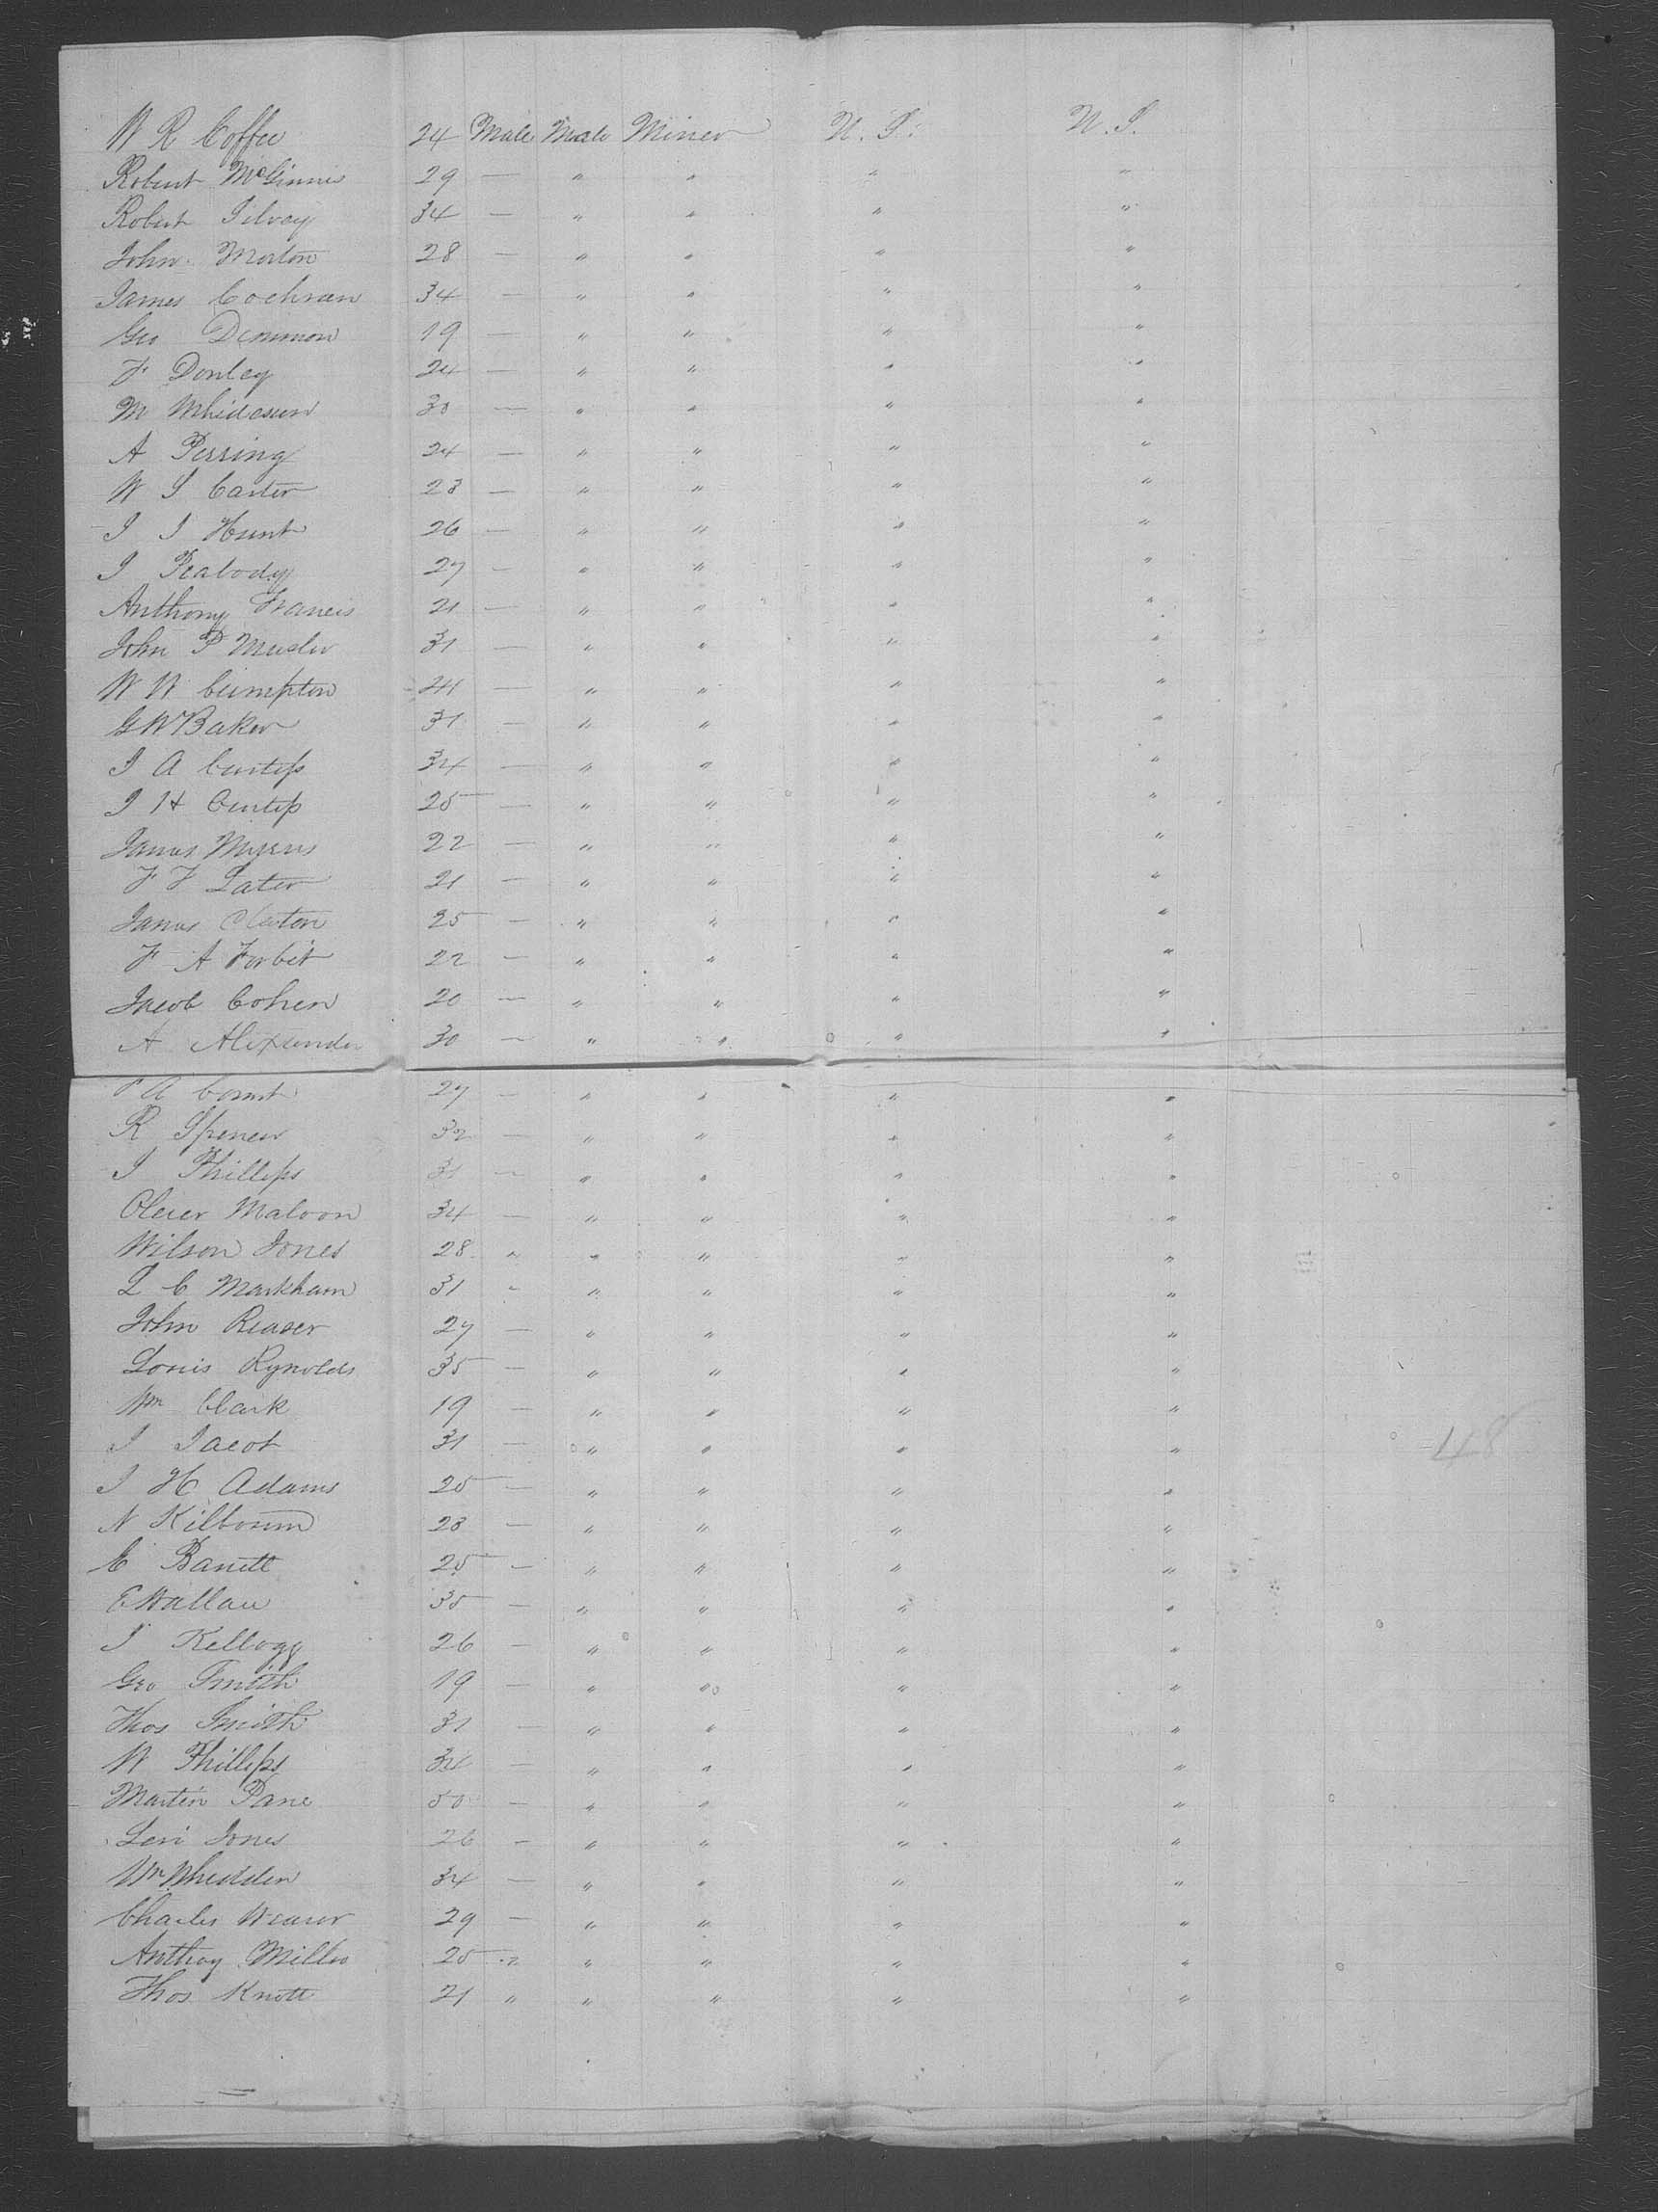 W R Coffee 24 Male Male Miner U. S. U. S.
Robert McGinnis 29 — " " " "
Robert Silvey 34 — " " " "
John Morton 28 — " " " "
James Cochran 34 — " " " "
Geo Demmon 19 — " " " "
F Donley 24 — " " " "
M 30 — " " " "
A Perring 24 — " " " "
W S Carter 23 — " " " "
J J Hunt 26 — " " " "
J Peabody 27 — " " " "
Anthony Francis 21 — " " " "
John P 31 — " " " "
W W Cumpton 24 — " " " "
G W Baker 31 — " " " "
J A Curtiss 34 — " " " "
J H Curtiss 25 — " " " "
James Myers 22 — " " " "
F F Later 21 — " " " "
James Claton 25 — " " " "
F A Forbet 22 — " " " "
Jacob Cohen 20 — " " " "
A Alexander 30 — " " " "
A 27 — " " " "
R Spencer 32 — " " " "
J Phillips 31 — " " " "
Maloon 34 — " " " "
Wilson Jones 28 " " " " "
L C Markham 31 - " " " "
John Reaser 27 — " " " "
Louis Rynolds 35 — " " " "
Wm Clark 19 — " " " "
J Jacot 31 — " " " "
148
J H Adams 25 — " " " "
N Kilbourn 23 — " " " "
E Barrett 25 — " " " "
E Wallace 35 — " " " "
J Kellogg 26 — " " " "
Geo Smith 19 — " " " "
Thos Smith 31 — " " " "
W Phillips 34 — " " " "
Martin Pane 50 — " " " "
Levi Jones 26 — " " " "
Wm Whedden 34 — " " " "
Charles Weaver 29 — " " " "
Anthoy Miller 25 " " " " "
Thos Knott 21 " " " " "